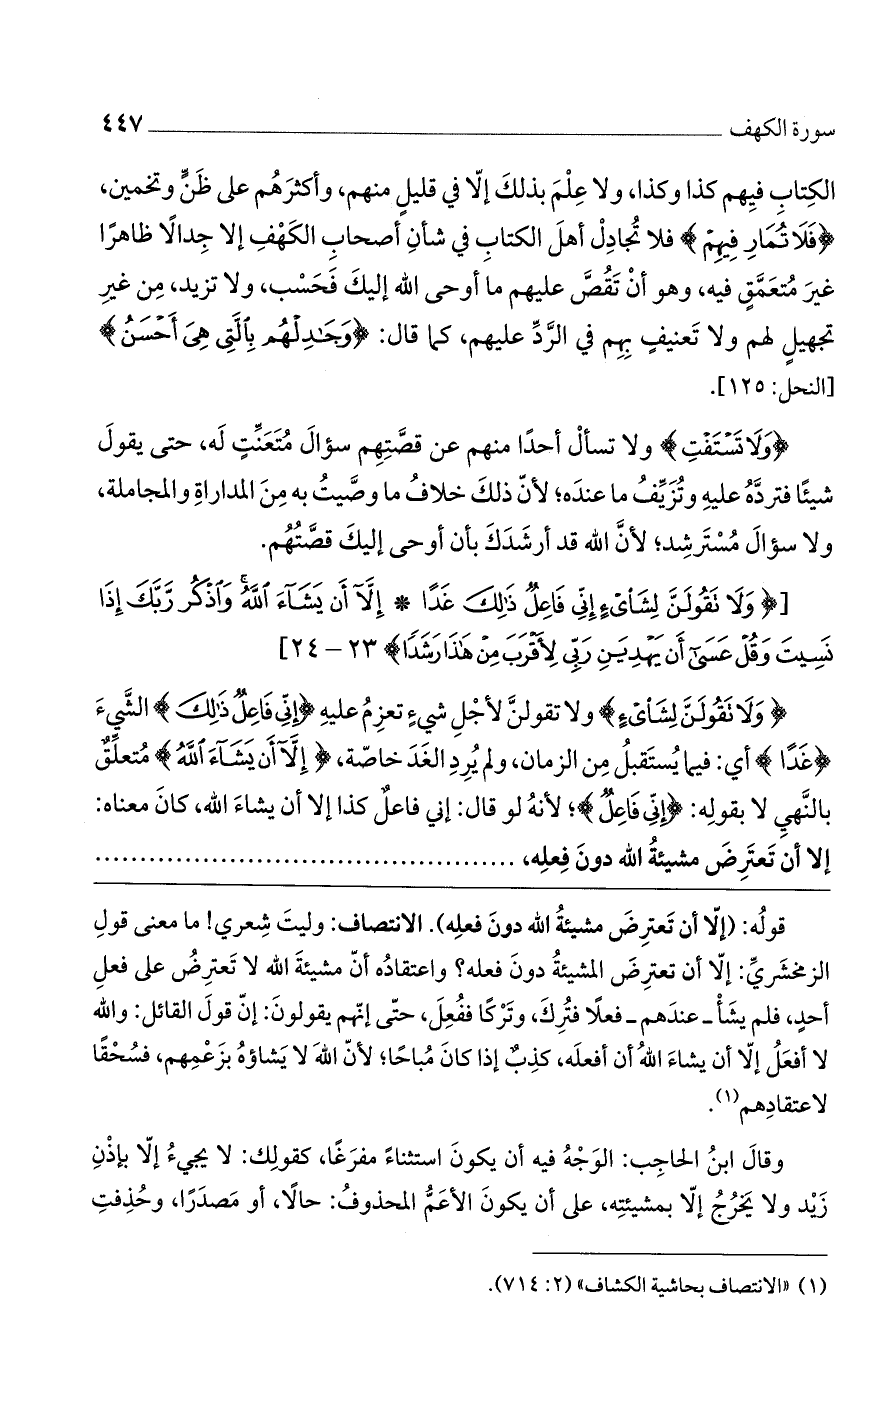 سورة الكهف ٤٤٧
الكِتابِ فيِهم كذا وكذا، ولا عِلْمَ بذلكَ إلّا في قليلٍ منهم، وأكثرَهُم على ظَنٍّ وتخمين،
﴿فَلَا تُمَارِ فِيهِمْ﴾ فلا تُجادِلْ أهلَ الكتابِ في شأنِ أصحابِ الكَهْفِ إلا جِدالًا ظاهرًا
غيرَ مُتعَمَّقٍ فيه، وهو أنْ تَقُصَّ عليهم ما أوحى الله إليكَ فَحَسْب، ولا تزيد، مِن غيرِ
تجهيلٍ لهم ولا تَعنيفٍ بِهِم في الرَّدِّ عليهم، كما قال: ﴿وَجَٰدِلْهُم بِٱلَّتِى هِىَ أَحْسَنُ﴾
[النحل: ١٢٥].
﴿وَلَا تَسْتَفْتِ﴾ ولا تسألْ أحدًا منهم عن قصَّتِهِم سؤالَ مُتَعَنِّتٍ لَه، حتى يقولَ
شيئًا فتردَّهُ عليهِ وتُزَيِّفُ ما عندَه؛ لأنّ ذلكَ خلافُ ما وصِّيتُ به مِنَ المداراةِ والمجاملة،
ولا سؤالَ مُسْتَرشِد؛ لأنَّ الله قد أرشَدَكَ بأن أوحى إليكَ قصَّتُهُم.
[﴿وَلَا تَقُولَنَّ لِشَاْىْءٍ إِنِّى فَاعِلٌ ذَٰلِكَ غَدًا * إِلَّآ أَن يَشَآءَ ٱللَّهُ وَٱذْكُر رَّبَّكَ إِذَا
نَسِيتَ وَقُلْ عَسَىٰٓ أَن يَهْدِيَنِ رَبِّى لِأَقْرَبَ مِنْ هَٰذَا رَشَدًا﴾ ٢٣ – ٢٤]
﴿وَلَا تَقُولَنَّ لِشَاْىْءٍ﴾ ولا تقولنَّ لأجْلِ شيءٍ تعزِمُ عليهِ ﴿إِنِّى فَاعِلٌ ذَٰلِكَ﴾ الشَّيءَ
﴿غَدًا﴾ أي: فيما يُستَقبلُ مِن الزمان، ولم يُرِدِ الغَدَ خاصّة، ﴿إِلَّآ أَن يَشَآءَ ٱللَّهُ﴾ مُتعلِّقٌ
بالنَّهيِ لا بقولِه: ﴿إِنِّى فَاعِلٌ﴾؛ لأنهُ لو قال: إني فاعلٌ كذا إلا أن يشاءَ الله، كانَ معناه:
إلا أن تَعتَرِضَ مشيئةُ الله دونَ فِعلِه، ..............................................
قولُه: (إلّا أن تَعترِضَ مشيئةُ الله دونَ فعلِه). الانتصاف: وليتَ شِعري! ما معنى قولِ
الزمخشريِّ: إلّا أن تعترِضَ المشيئةُ دونَ فعله؟ واعتقادُه أنّ مشيئةَ الله لا تَعترِضُ على فعلِ
أحدٍ، فلم يشَأْ ـ عندَهم ـ فعلًا فتُرِكَ، وتَرْكًا ففُعِلَ، حتّى إنّهم يقولونَ: إنّ قولَ القائل: والله
لا أفعَلُ إلّا أن يشاءَ اللهُ أن أفعلَه، كذِبٌ إذا كانَ مُباحًا؛ لأنّ اللهَ لا يَشاؤهُ بزَعْمِهم، فسُحْقًا
لاعتقادِهم(١).
وقالَ ابنُ الحاجِب: الوَجْهُ فيه أن يكونَ استثناءً مفرَغًا، كقولِك: لا يجيءُ إلّا بإذْنِ
زَيْد ولا يَخرُجُ إلّا بمشيئتِه، على أن يكونَ الأعَمُّ المحذوفُ: حالًا، أو مَصدَرًا، وحُذِفتِ
(١) «الانتصاف بحاشية الكشاف» (٢: ٧١٤).